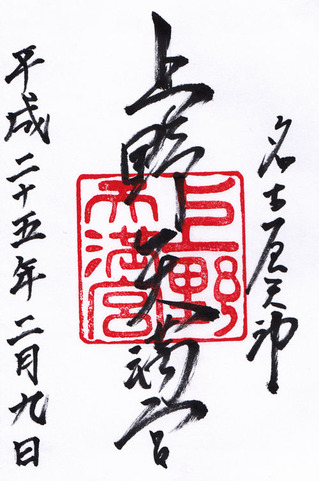 名古屋天神
上野天満宮
上野
天満宮
平成二十五年二月九日